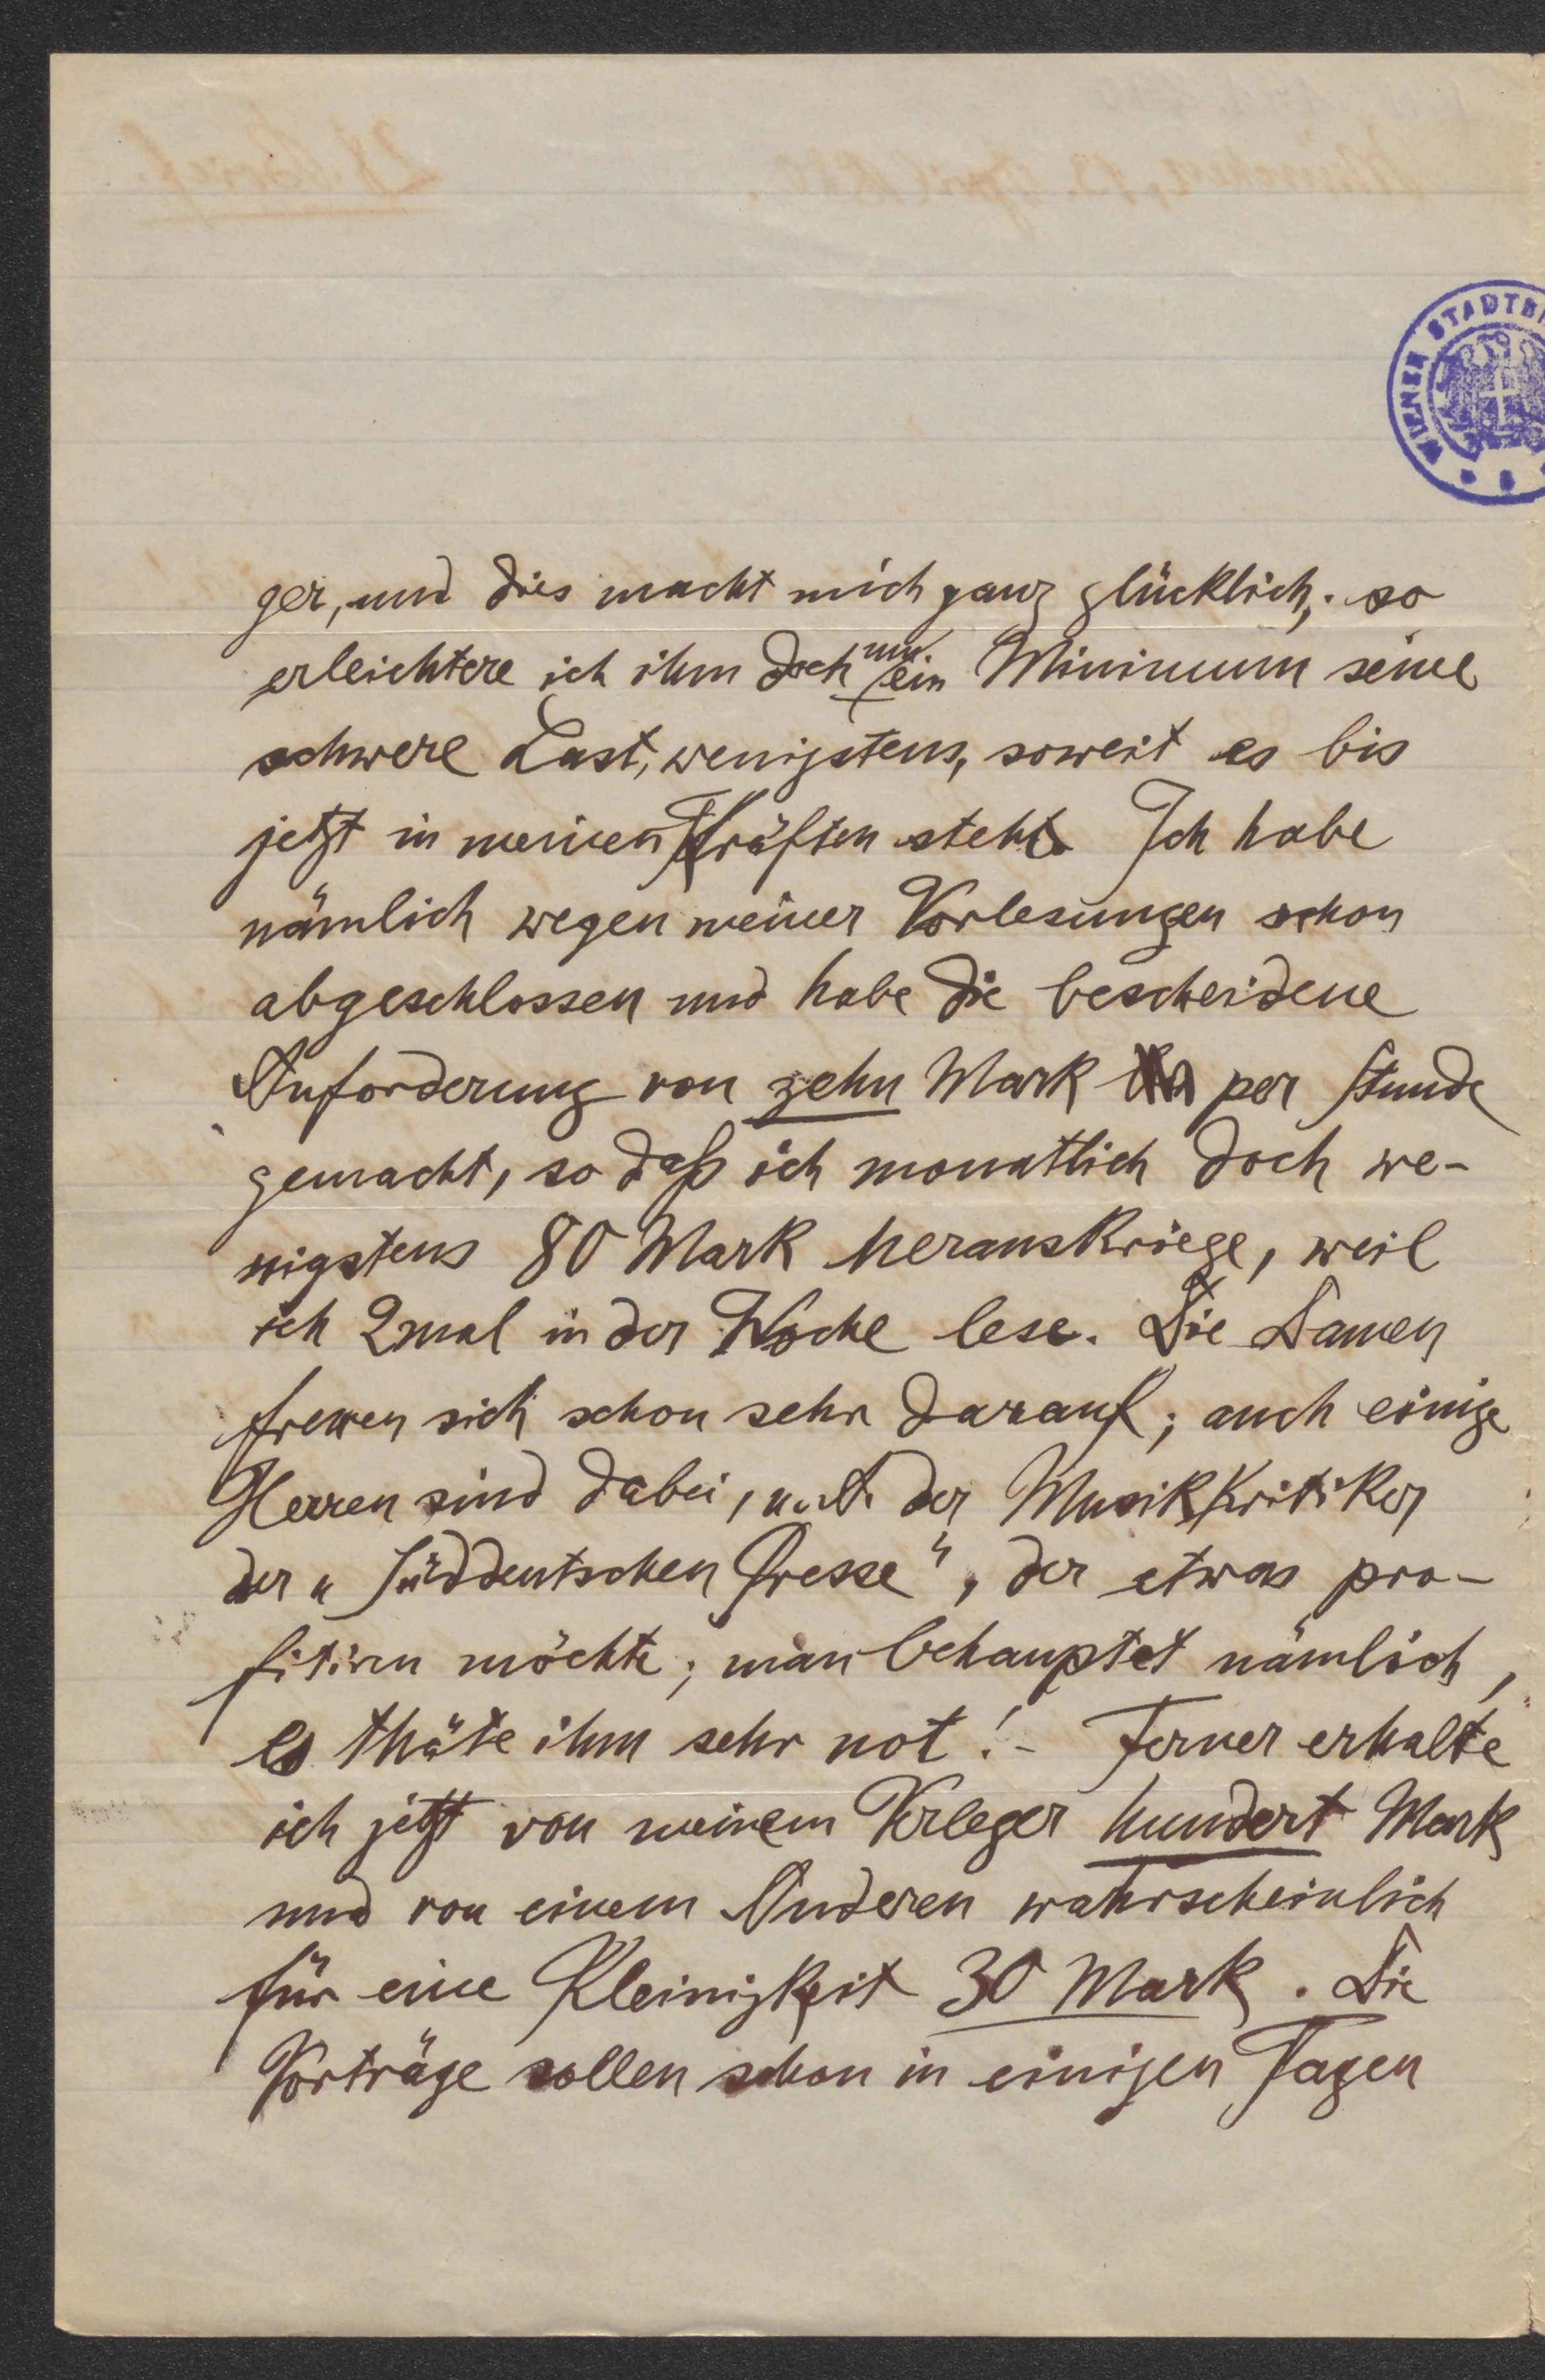 WIENER STADTBI
ger, und dies macht mich ganz glücklich; so
erleichtere ich ihm doch um ein Minimum seine
schwere Last, wenigstens, soweit es bis
jetzt in meinen Kräften steht. Ich habe
nämlich wegen meiner Vorlesungen schon
abgeschlossen und habe die bescheidene
Anforderung von zehn Mark per Stunde
gemacht, so daß ich monatlich doch we-
nigstens 80 Mark herauskriege, weil
ich 2mal in der Woche lese. Die Damen
freuen sich schon sehr darauf; auch einige
Herren sind dabei, u. A. der Musikkritiker
der „Süddeutschen Presse", der etwas pro-
fitiren möchte; man behauptet nämlich,
es thäte ihm sehr not! - Ferner erhalte
ich jetzt von meinem Verleger hundert Mark
und von einem Anderen wahrscheinlich
für eine Kleinigkeit 30 Mark. Die
Vorträge sollen schon in einigen Tagen